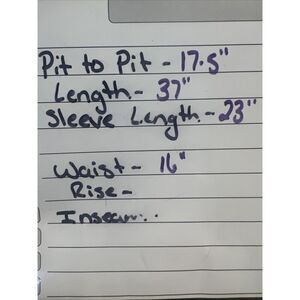 Pit to Pit - 17.5"
Length - 37"
Sleeve Length - 23"
Waist - 16"
Rise -
Inseam...